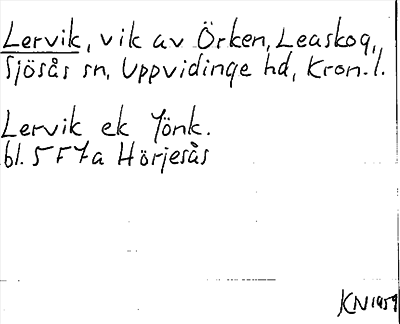 Lervik, vik av Örken, Leaskog,
Sjösås sn, Uppvidinge hd, Kron. l.
Lervik ek Jönk.
bl. 5 F 7a Hörjesås
KN 1959